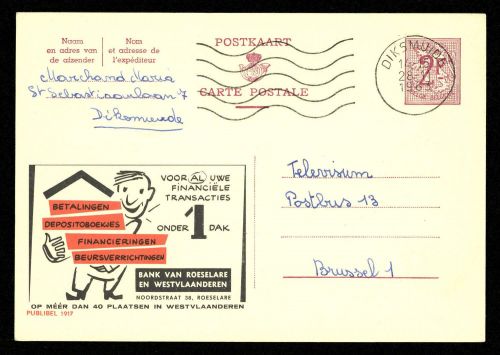 Naam
en adres van
de afzender
Nom
et adresse de
l'expéditeur
Marchand Maria
St Sebastiaanlaan 7
Diksmuide
POSTKAART
CARTE POSTALE
DIKSMUIDE
2F
Televisium
Postbus 13
Brussel 1
VOOR AL UWE
FINANCIËLE
TRANSACTIES
ONDER 1 DAK
BETALINGEN
DEPOSITOBOEKJES
FINANCIERINGEN
BEURSVERRICHTINGEN
BANK VAN ROESELARE
EN WESTVLAANDEREN
NOORDSTRAAT 38, ROESELARE
OP MÉÉR DAN 40 PLAATSEN IN WESTVLAANDEREN
PUBLIBEL 1917